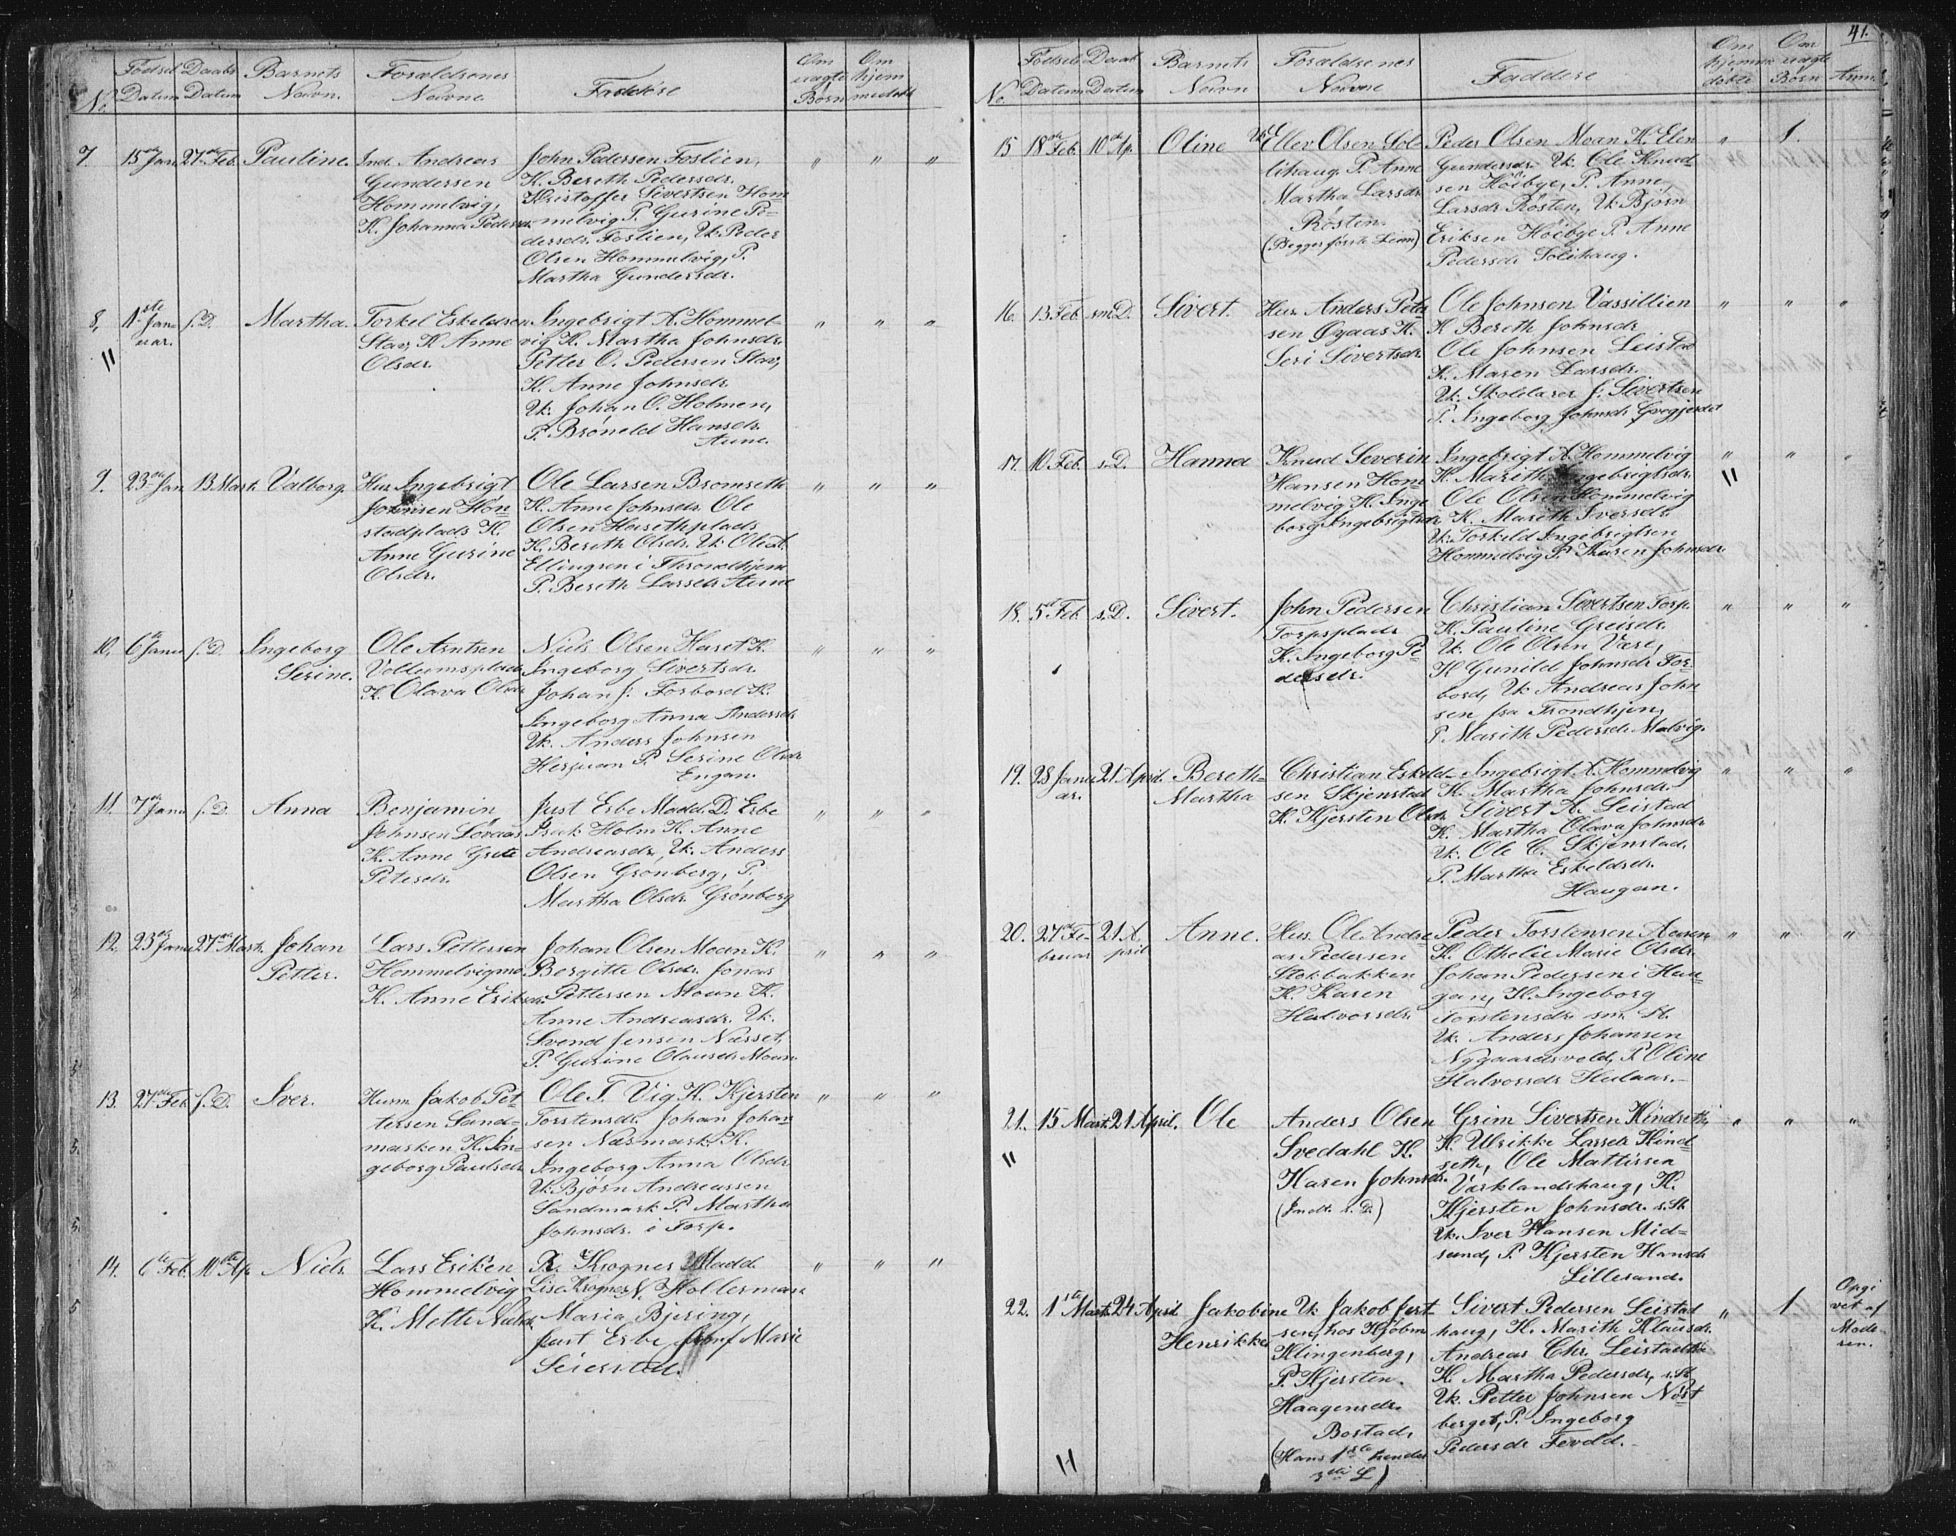 41.
No. Fødsels Datum Daabs Datum Barnets Navn. Forældrenes Navne. Faddere Om uægte Børn Om hjemmedøbt
7. 15de Jan 27de Feb. Pauline. Ind. Andreas
Gundersen
Hommelvig,
K. Johanna Pedersdr.
John Pedersen Fostien,
K. Bereth Pedersdr.
Kristoffer Sivertsen Hom
melvig P. Gurine Pe-
dersdr. Fostien, Uk. Peder
Olsen Hommelvig, P.
Martha Gundersdr.
8. 11ste Jan- uar. s. D. Martha. Torkel Eskeldsen
Stav, K. Anne
Olsdr.
Ingebrigt A. Hommel-
vig K. Martha Johnsdr.
Petter O. Pedersen Stav,
K. Anne Johnsdr.
Uk. Johan O. Holmen,
P. Brøneld Hansdr.
Aune.
9. 23de Jan 13. Mart. Valborg. Hus. Ingebrigt
Johnsen Høn-
stadplads K.
Anne Gurine
Olsdr.
Ole Larsen Bromseth
K. Anne Johnsdr. Ole
Olsen Hasethplads
K. Bereth Olsdr. Uk. Ole A.
Ellingsen i Throndhjem
P. Bereth Larsdr. Aune
10. 6te Janu s. D. Ingeborg
Serine.
Ole Arntsen
Voldumsplads
K. Olava Olsdr.
Niels Olsen Haset K.
Ingeborg Sivertsdr.
Johan J. Forbord K.
Ingeborg Anna Andersdr.
Uk. Anders Johnsen
Herjuan P. Serine Olsdr
Engan.
11. 7de Janu s. D. Anna Benjamin
Johnsen Løvaas
K. Anne Grete
Petersdr.
Just Erbe Madd. D. Erbe
Isak Holm K. Anne
Andreasdr, Uk. Anders
Olsen Grønberg, P.
Martha Olsdr. Grønberg
12. 23de Janu 27de Mart. Johan
Petter.
Lars Pettersen
Hommelvigmo
K. Anne Eriksdr.
Johan Olsen Moan K.
Bergitte Olsdr. Jonas
Pettersen Moan K.
Anne Andreasdr. Uk.
Svend Jensen Næsset,
P. Gurine Olausdr. Moan
13. 27de Feb. s. D. Iver. Husm Jakob Pet-
tersen Sand-
marken K. In-
geborg Paulsdr.
Ole T. Vig K. Kjersten
Torstensdr. Johan Johan-
sen Næsmark K.
Ingeborg Anna Olsdr.
Uk. Bjørn Andreassen
Sandmark P. Martha
Johnsdr. i Torp.
14. 6te Feb. 10de Ap. Niels. Lars Eriken
Hommelvig
K. Mette Nielsdr.
R. Krognes Madd
Lise Krognes, N. Hollerman
Maria Bjering,
Just Erbe Jomf Marie
Seierstad.
No. Fødsels Datum Daab Datum Barnets Navn Forældrenes Navne Faddere Om hjemme døbte Om uægte Børn Anm.
15 18de Feb. 10de Ap. Oline Uk. Ellev Olsen Sol-
lihaug. P. Anne
Martha Larsdr
Røsten.
(Begges første Leier)
Peder Olsen Moan K. Elen
Gundersdr. Uk. Ole Knud-
sen Høibye, P. Anne
Larsdr Røsten, Uk. Bjørn
Eriksen Høibye P. Anne
Pedersdr Solihaug.
1.
16. 13 Feb. sm. D. Sivert. Hus. Anders Peter
sen Øyaas K.
Seri Sivertsdr.
Ole Johnsen Vassillien
K Bereth Johnsdr.
Ole Johnsen Leistad
K. Maren Larsdr.
Uk. Skolelærer J. Sivertsen
P. Ingeborg Johnsdr
17. 10 Feb. s. D. Hanna Knud Severin
Hansen Hom-
melvig K. Inge
borg Ingebrigtsdr.
Ingebrigt A. Hommelvig
K. Marith Ingebrigtsdr.
Ole Olsen Hommelvig
K. Mareth Iversdr.
Uk. Torkeld Ingebrigtsen
Hommelvig P. Karen Johnsdr.
18. 5te Feb. s. D. Sivert. John Pedersen
Torpsplads
K. Ingeborg Pe-
dersdr.
Christian Sivertsen Torp.
K. Pauline Greisdr.
Uk. Ole Olsen Være,
K Gunild Johnsdr For-
bord, Uk Andreas John
sen fra Trondhjem,
P Marith Pedersdr. Malvig.
19. 28 Janu ar. 21 April. Bereth
Martha
Christian Eskeld-
sen Skjenstad
K. Kjersten Olsdr.
Ingebrigt A. Hommelvig
K. Martha Johnsdr.
Sivert A. Leistad
K. Martha Olava Johnsdr.
Uk. Ole C. Skjenstad.
P. Martha Eskeldsdr.
Haugan.
20. 27de Fe- bruar 21 A- pril Anne. Hus. Ole Andre
as Pedersen
Stokbakken
K. Karen
Halvorsdr.
Peder Torstensen Aasen,
K. Othelie Marie Olsdr.
Johan Pedersen i Hau-
gan, K. Ingeborg
Torstensdr. sm. St.
Uk. Anders Johansen
Nygaardsvold, P. Oline
Halvorsdr Hulaas.
21. 15 Mart. 21 April. Ole Anders Olsen
Svedahl K.
Karen Johnsdr.
(Indt. s. D.)
Grim Sivertsen Kindseth,
K. Ulrikke Larsdr. Kind-
seth, Ole Mattisen
Værklandshaug, K.
Kjersten Johnsdr. s. St.
Uk. Iver Hansen Mid-
sand, P. Kjersten Hansdr
Lillesand.
22. 1ste Mart. 24 April Jakobine
Henrikke
Uk. Jakob Just-
sen, hos Hjøbm
Klingenberg,
P. Kjersten.
Haagensdr.
Bostad,
(Hans 1ste hendes
3die L)
Sivert Pedersen Leistad
haug, K. Marith Klausdr.
Andreas Chr. Leistad
K. Martha Pedersdr, s. St.
Uk. Petter Johnsen Nøst
berget, P. Ingeborg
Pedersdr Fevold.
1. Opgi
vet af
Mode-
ren.